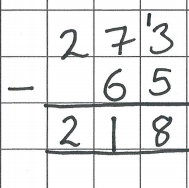 27¹3
- 65
218